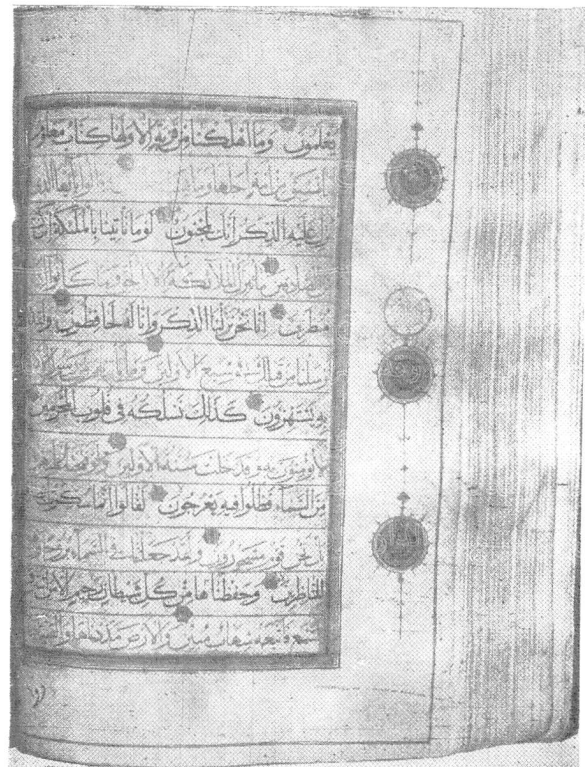 يعلمون وما اهلكنا من قرية الا ولها كتاب معلوم
ما تسبق من امة اجلها وما وقالوا يا ايها الذى
نزل عليه الذكر انك لمجنون لو ما تاتينا بالملئكة ان
من الصادقين ما ننزل الملائكة الا بالحق وما كانوا اذا
منظرين انا نحن نزلنا الذكر وانا له لحافظون ولقد
ارسلنا من قبلك فى شيع الاولين وما ياتيهم من رسول الا
به يستهزؤن كذلك نسلكه فى قلوب المجرمين
لا يؤمنون به وقد خلت سنة الاولين ولو فتحنا عليهم
من السماء فظلوا فيه يعرجون لقالوا انما سكرت
بل نحن قوم مسحورون ولقد جعلنا فى السماء بروجا
للناظرين وحفظناها من كل شيطان رجيم الا من
السمع فاتبعه شهاب مبين والارض مددناها والقينا